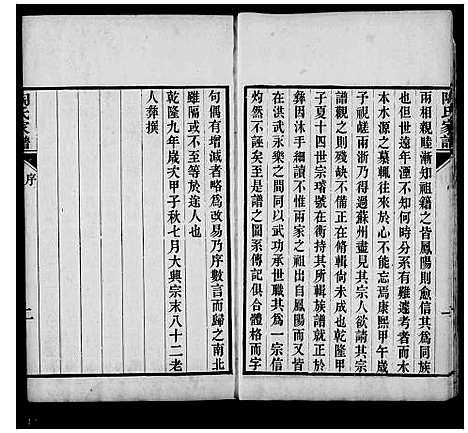 陶氏家譜
雨相親睦漸知祖籍之皆鳳陽則愈信其為同族
也但世遠年湮不知何時分系有難遽考者而木
本水源之慕輒往來於心不能忘焉康熙甲午歲
予視鹺兩浙乃得過蘇州盡見其宗人欲請其宗
譜觀之則殘缺不備正在脩輯尚未成也乾隆甲
子夏十四世宗璿號在衡持其所輯族譜就正於
彝因沐手細讀不惟兩家之祖出自鳳陽而又皆
在洪武永樂之間同以武功承世職其為一宗信
灼然不誣矣至是譜之圖系傳記俱合體格而字
句偶有增減者略為改易乃序數言而歸之南北
雖隔或不至等於途人也
乾隆九年歲次甲子秋七月大興宗末八十二老
人彝撰
陶氏家譜
序
二